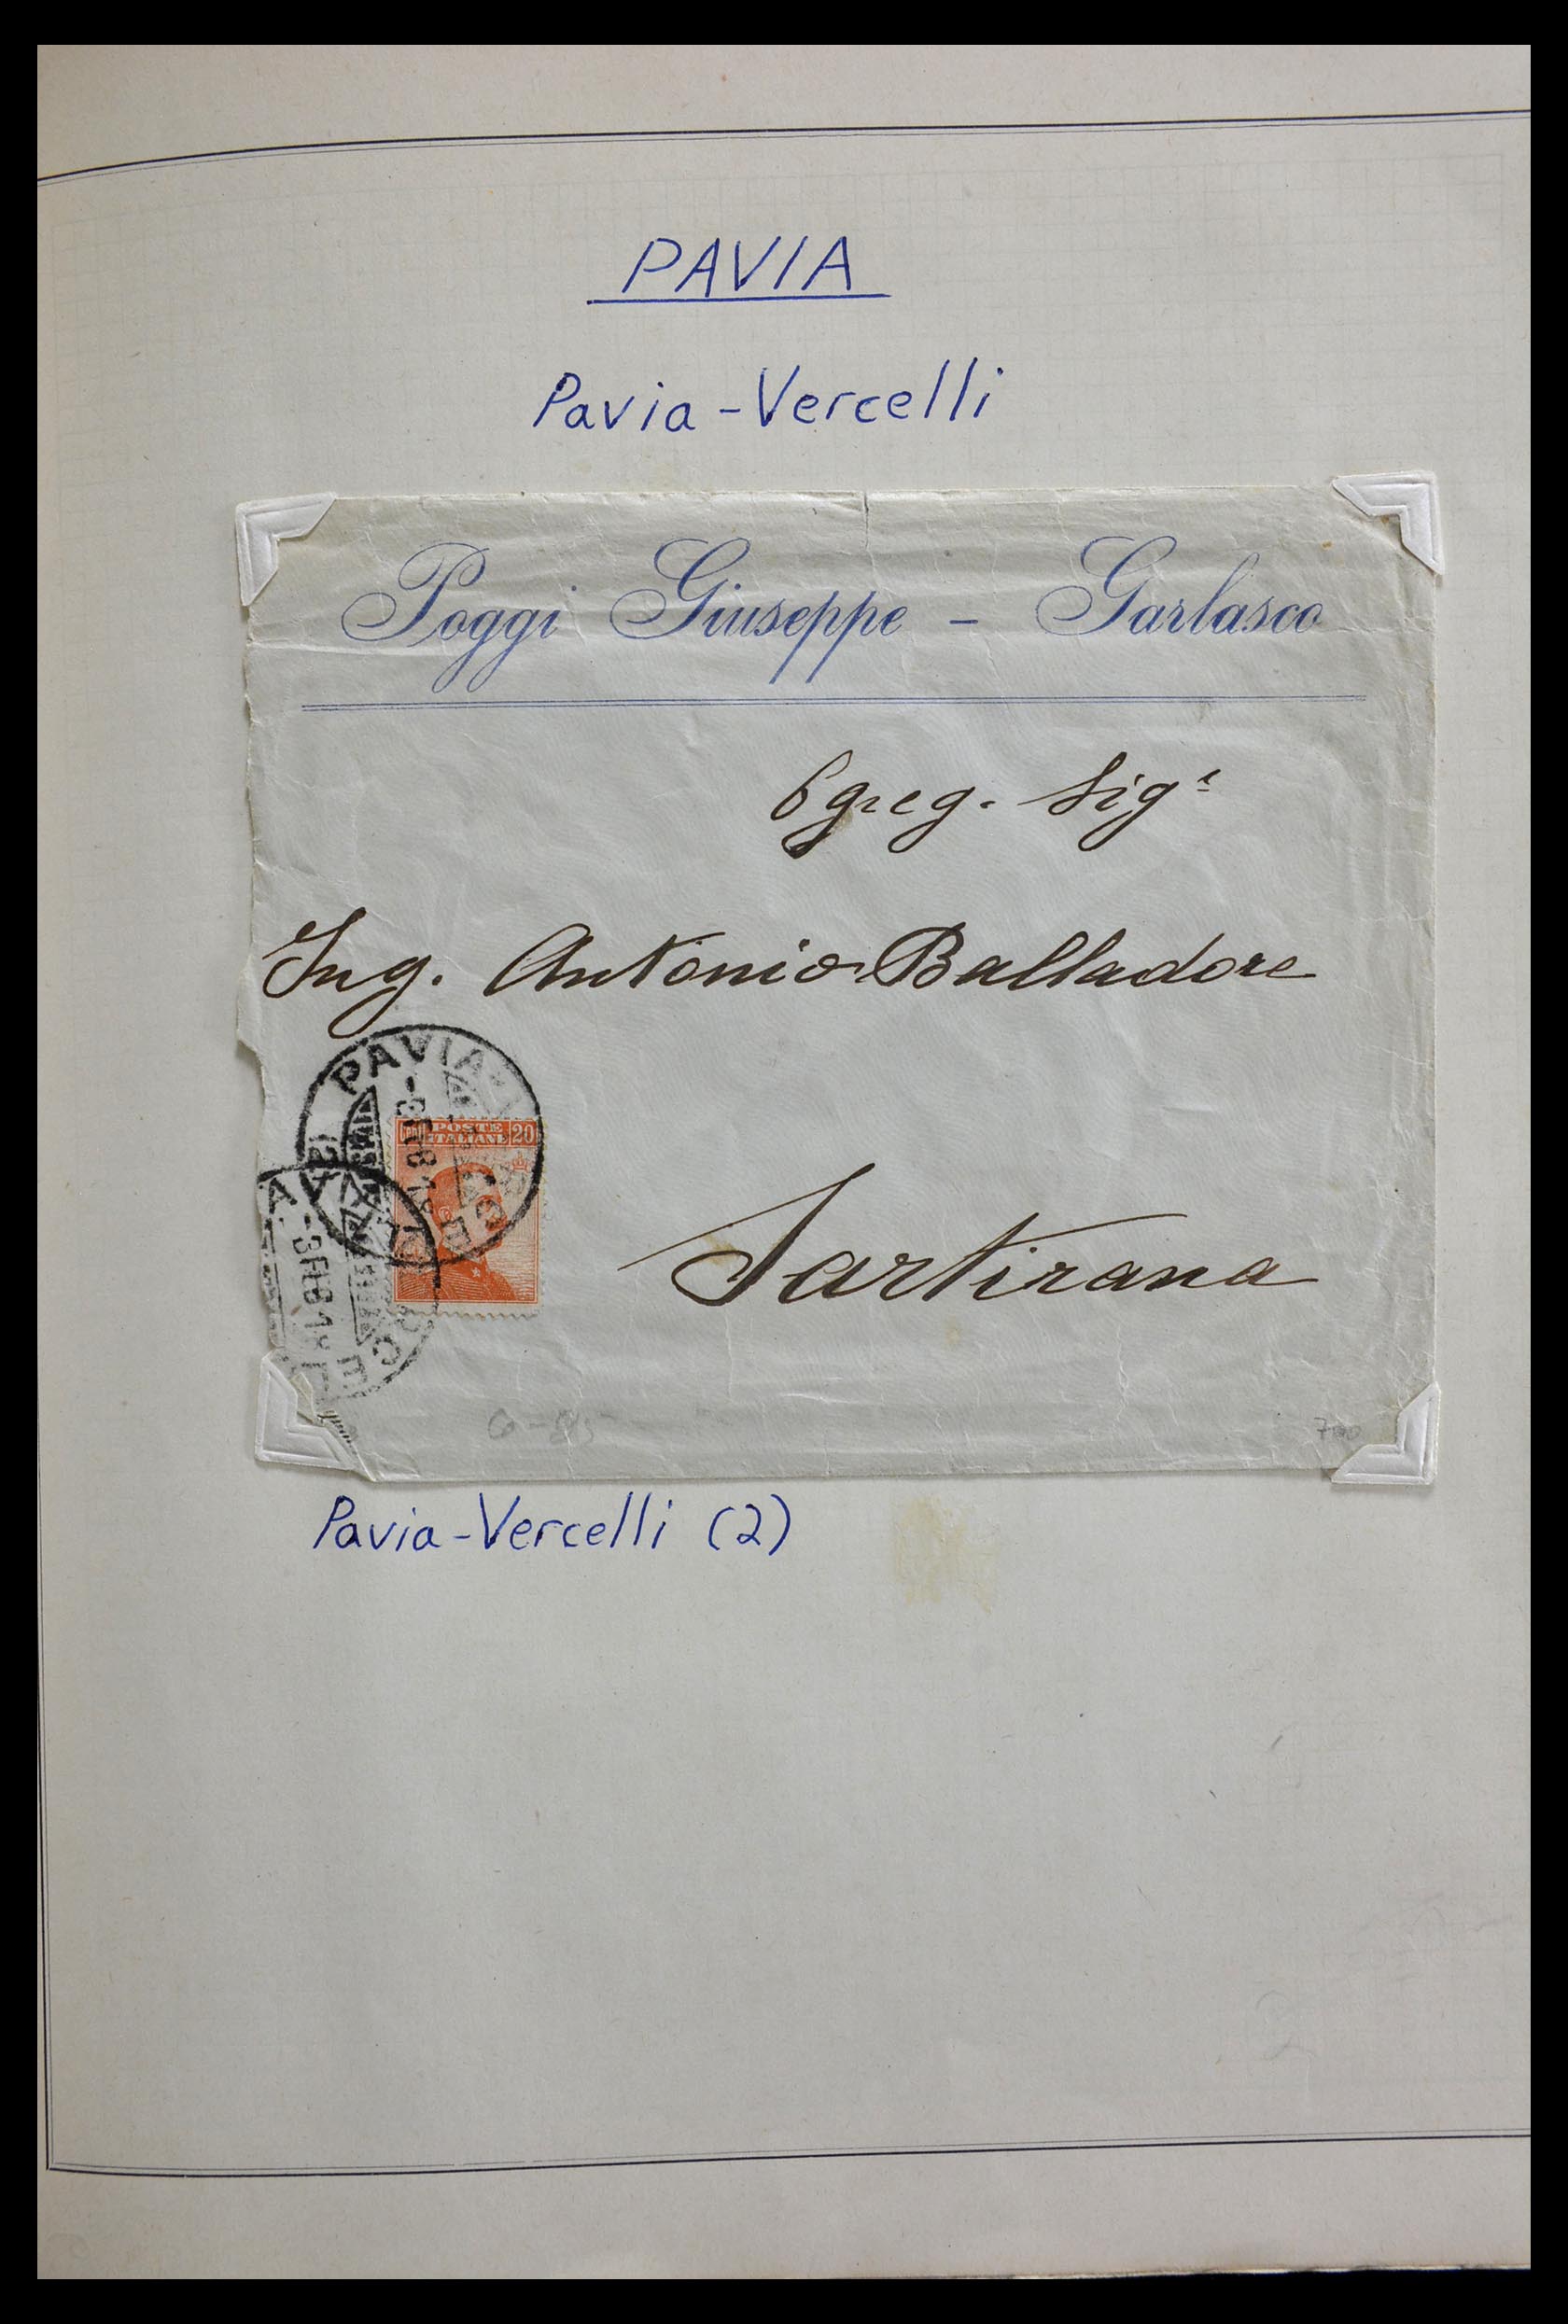 PAVIA
Pavia-Vercelli
Poggi Giuseppe - Garlasco
Egreg. Sigr
Ing. Antonio Balladore
PAVIA
Cent. POSTE ITALIANE 20
Sartirana
Pavia-Vercelli (2)